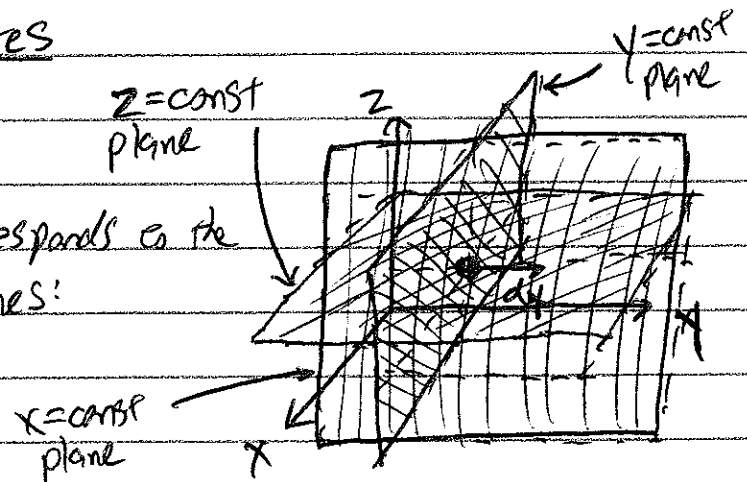 es
Y=const
plane
Z=const
plane
Z
esponds to the
nes:
dy
y
X=const
plane
X